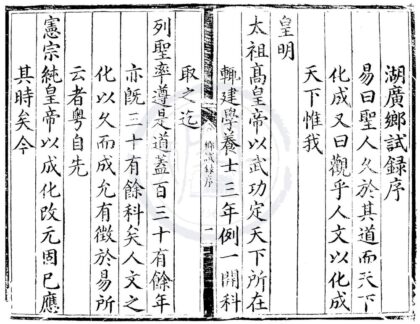 湖廣鄉試錄序
易曰聖人久於其道而天下
化成又曰觀乎人文以化成
天下惟我
皇明
太祖高皇帝以武功定天下所在
輒建學養士三年例一開科
鄉試錄序
一
取之迄
列聖率遵是道蓋百三十有餘年
亦旣三十有餘科矣人文之
化以久而成允有徵於易所
云者粵自先
憲宗純皇帝以成化改元固已應
其時矣今